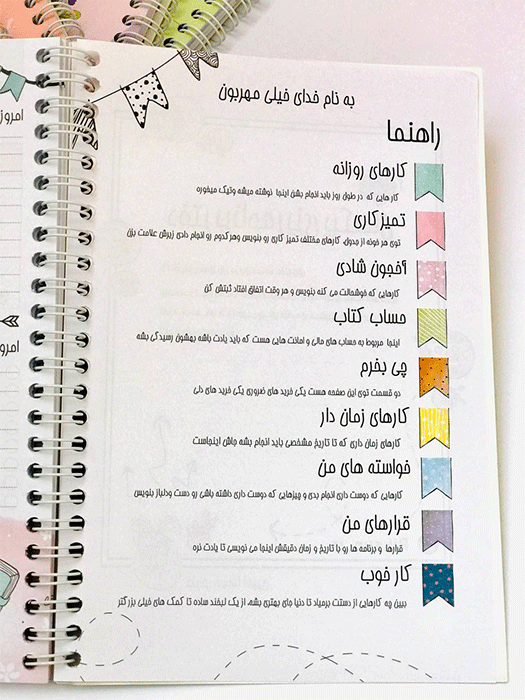 به نام خدای خیلی مهربون
راهنما
کارهای روزانه
کار هایی که در طول روز باید انجام بشن اینجا نوشته میشه وتیک میخوره
تمیزکاری
توی هر خونه از جدول، کارهای مختلف تمیز کاری رو بنویس وهرکدوم رو انجام دادی زیرش علامت بزن
آخجون شادی
کارهایی که خوشحالت می کنه بنویس و هر وقت اتفاق افتاد ثبتش کن
حساب کتاب
اینجا مربوط به حساب های مالی و امانت هایی هست که باید یادت باشه بهشون رسیدگی بشه
چی بخرم
دو قسمت توی این صفحه هست یکی خرید های ضروری یکی خرید های دلی
کارهای زمان دار
کارهای زمان داری که تا تاریخ مشخصی باید انجام بشه جاش اینجاست
خواسته های من
کارهایی که دوست داری انجام بدی و چیزهایی که دوست داری داشته باشی رو دست ودلباز بنویس
قرارهای من
قرارها و برنامه ها رو با تاریخ و زمان دقیقش اینجا می نویسی تا یادت نره
کار خوب
ببین چه کارهایی از دستت برمیاد تا دنیا جای بهتری بشه، از یک لبخند ساده تا کمک های خیلی بزرگتر
امروز